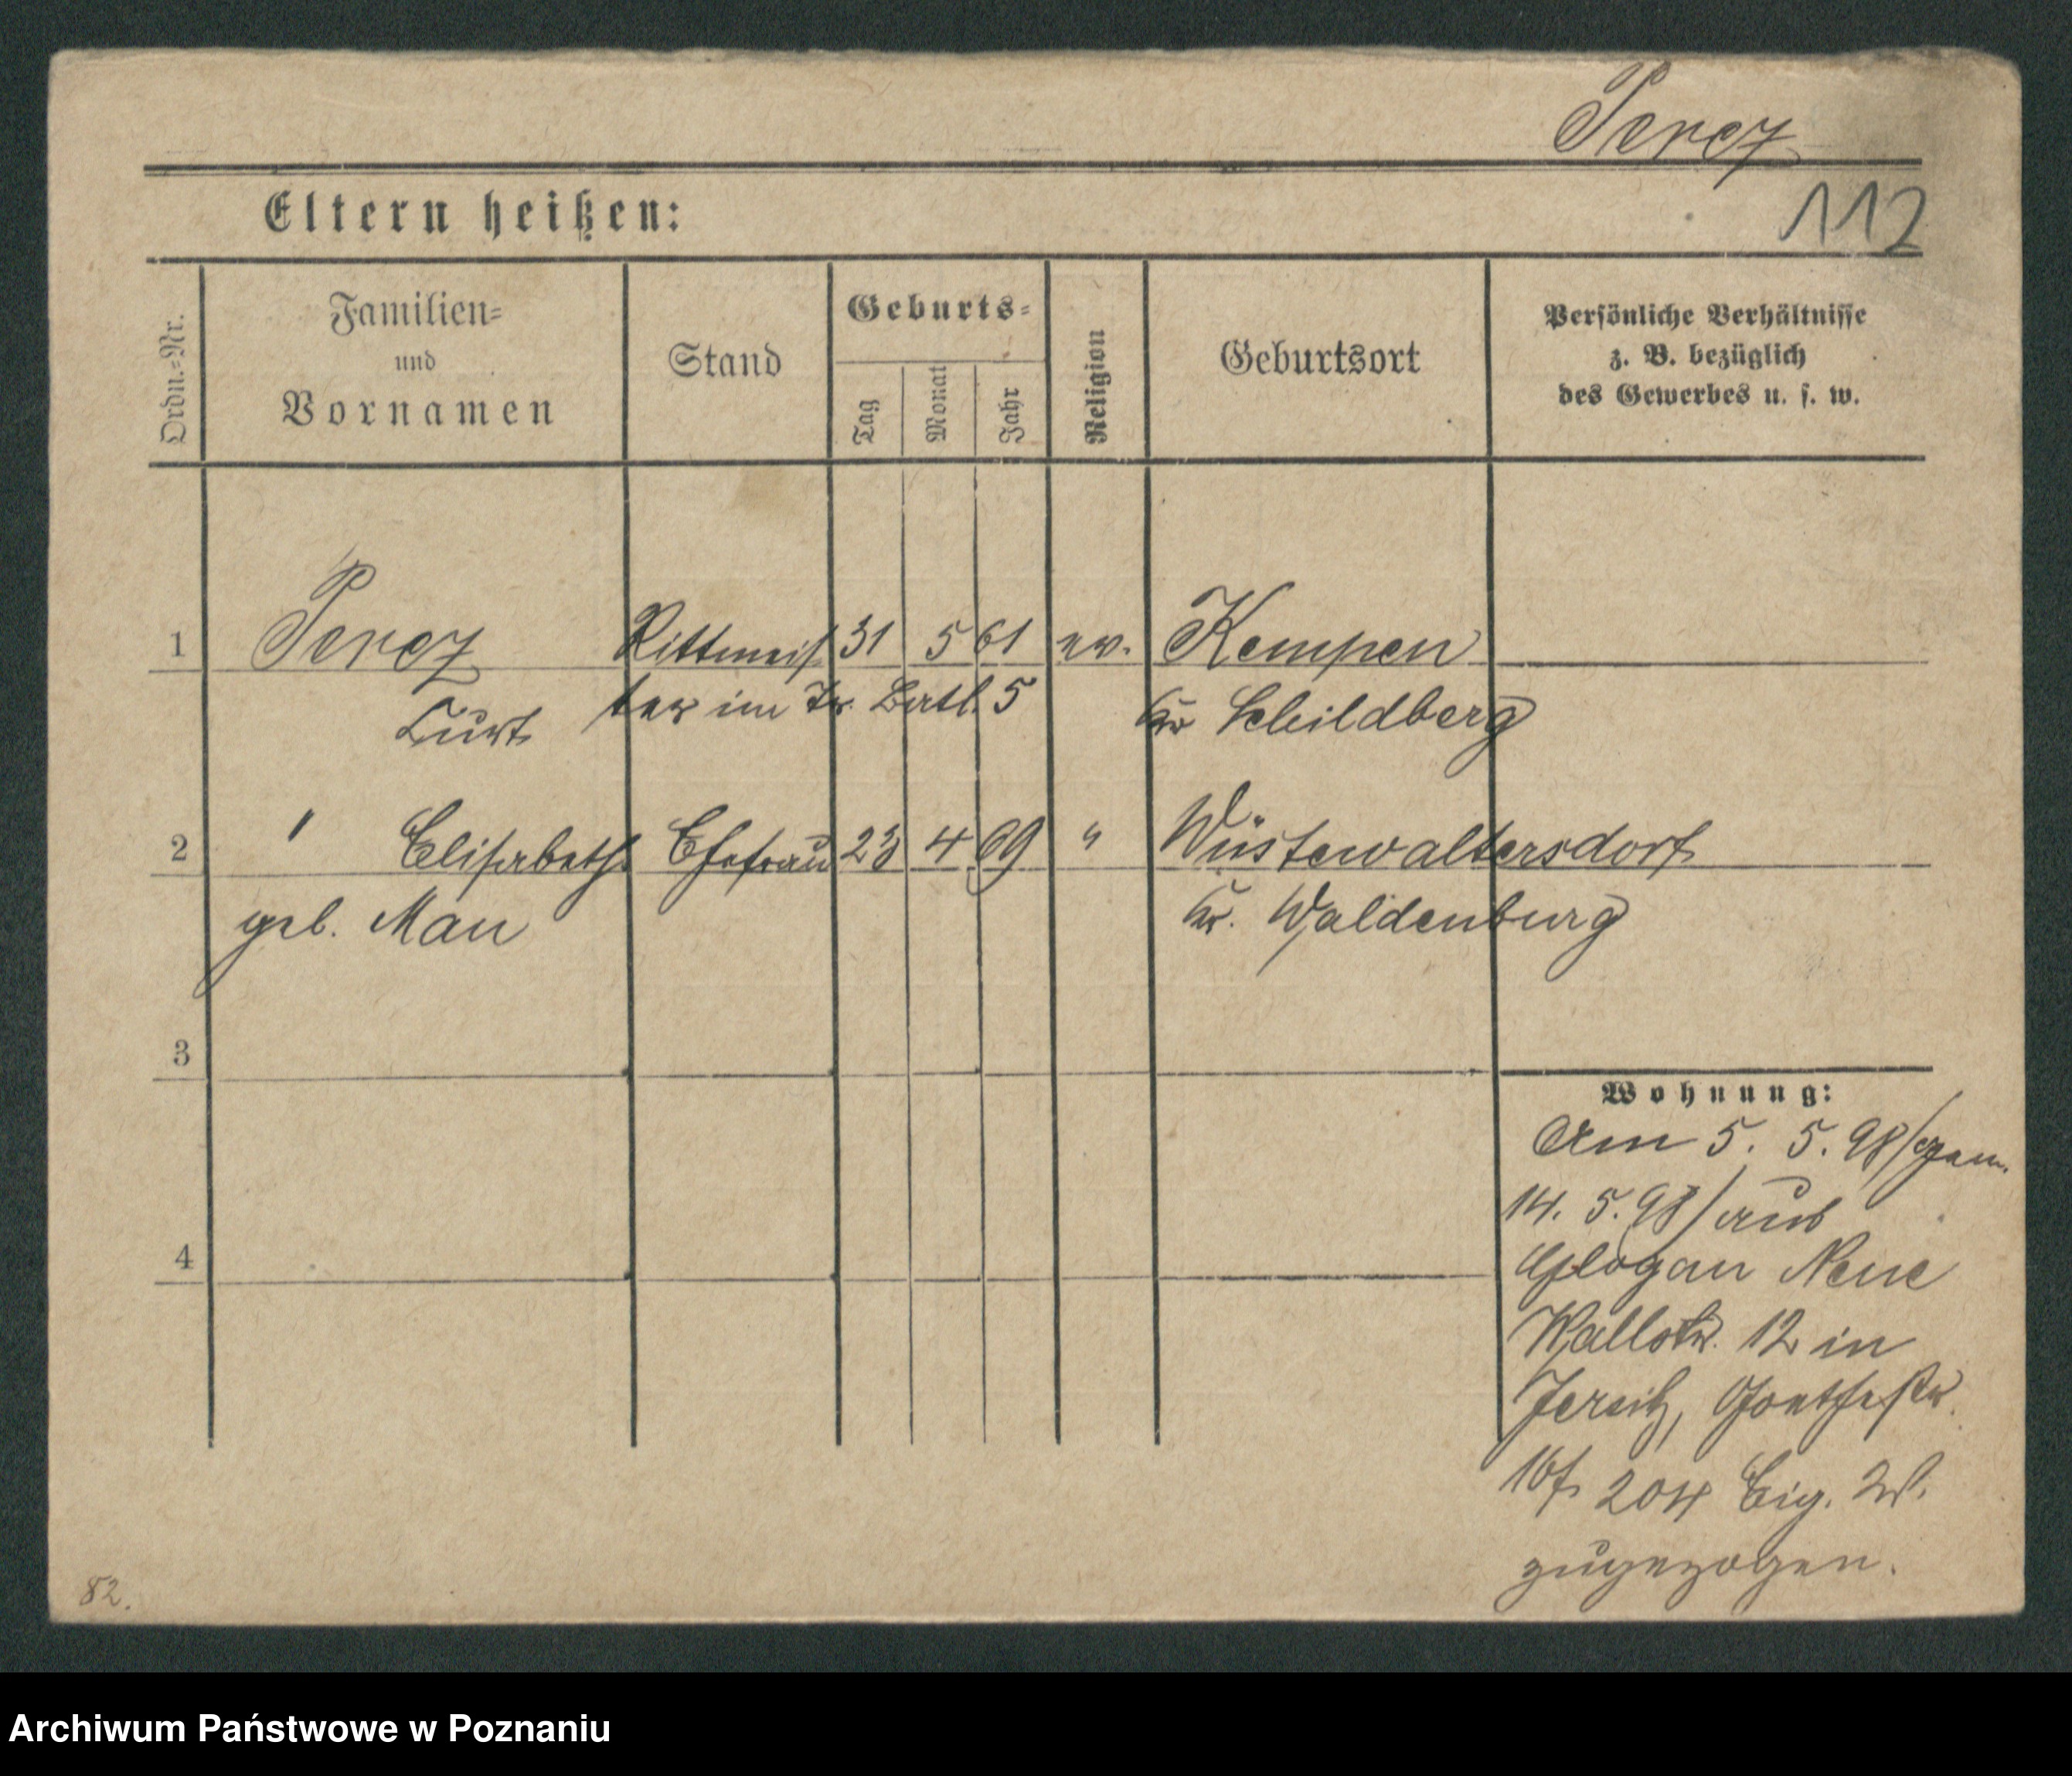 Perez
112
Eltern heißen:
Ordn.=Nr.
Familien=
und
Vornamen
Stand
Geburts=
Tag
Monat
Jahr
Religion
Geburtsort
Persönliche Verhältnisse
z. B. bezüglich
des Gewerbes u. s. w.
1 Perez Rittmeis 31 5 61 ev. Kempen
Curt ter im Tr. Batl. 5 Kr Schildberg
2 " Elisabeth Ehefrau 23 4 69 " Wüstewaltersdorf
geb. Kr. Waldenburg
3
4
Wohnung:
Am 5. 5. 98/gem.
14. 5. 98/aus
Glogau Neue
Wallstr. 12 in
Jersitz, Goethestr.
204 Eig. W.
zugezogen.
82.
Archiwum Państwowe w Poznaniu